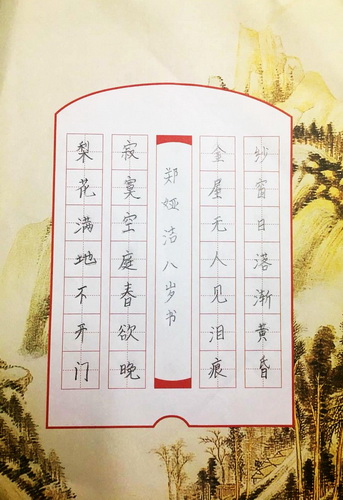 纱窗日落渐黄昏
金屋无人见泪痕
郑娅洁八岁书
寂寞空庭春欲晚
梨花满地不开门